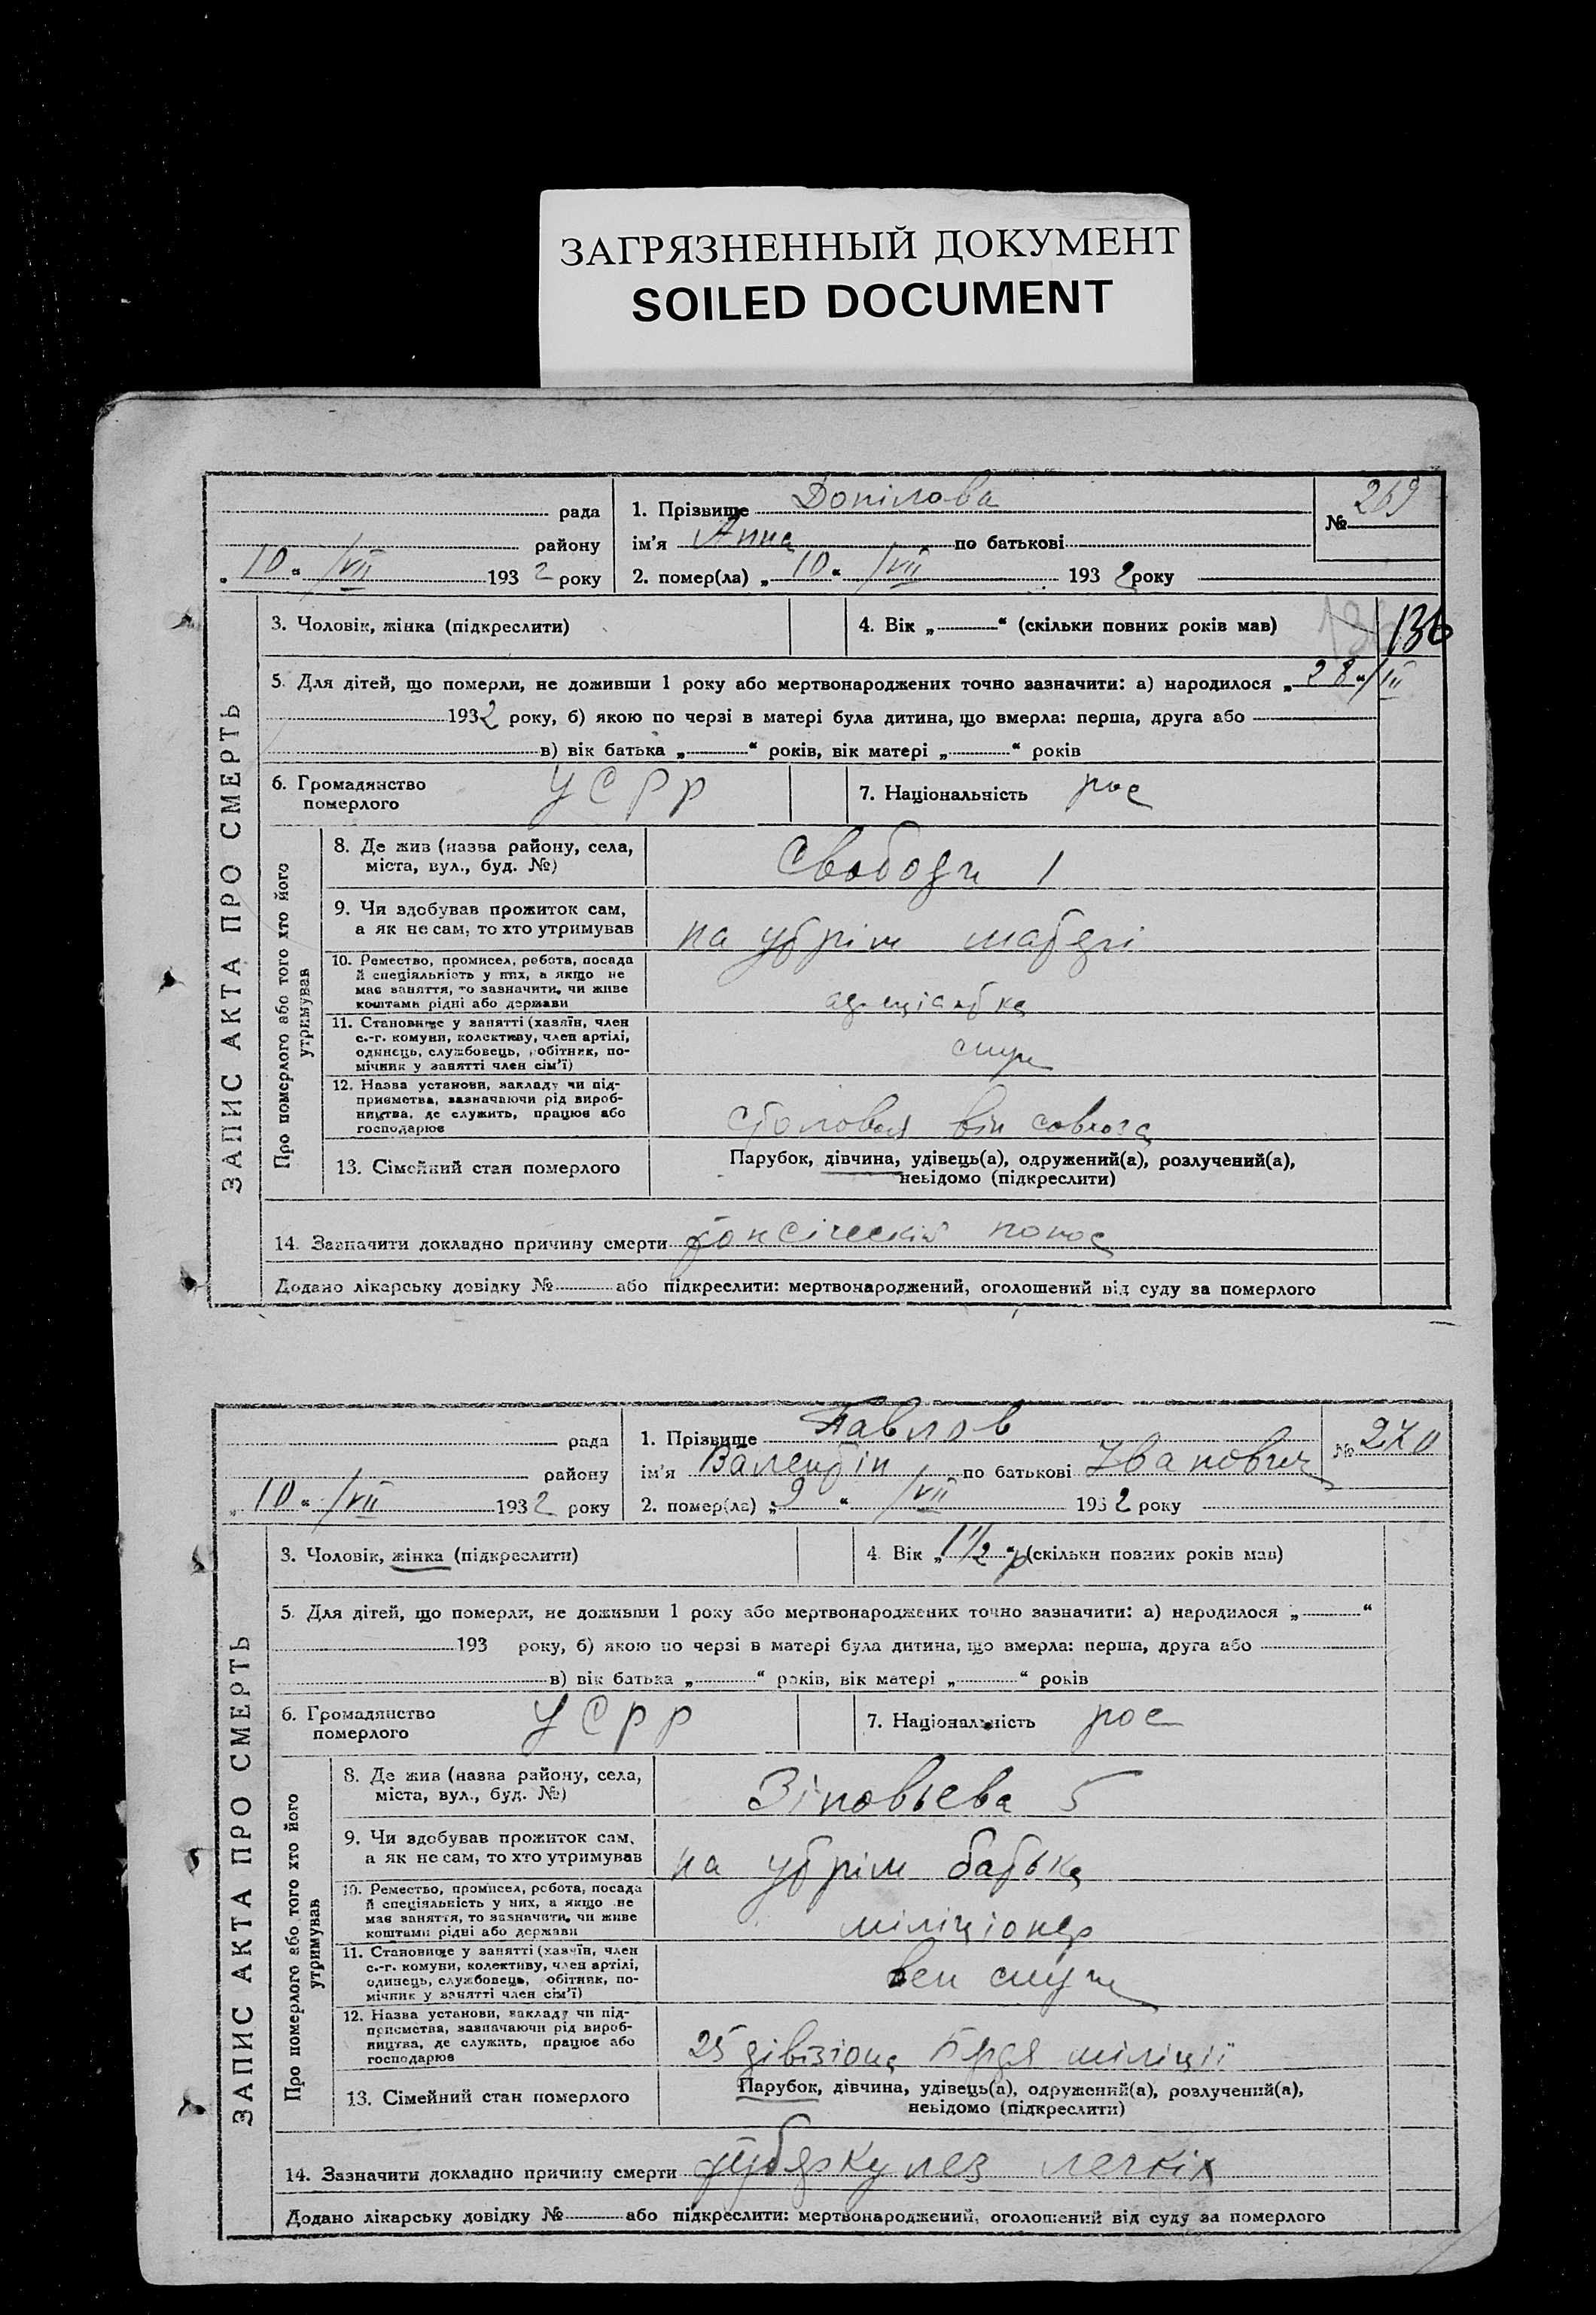 ЗАГРЯЗНЕННЫЙ ДОКУМЕНТ
SOILED DOCUMENT
ЗАПИС АКТА ПРО СМЕРТЬ
рада
району
„10“ /VII 1932 року
1. Прізвище Донілова
ім'я Анна по батькові
2. помер(ла) „10“ /VII 1932 року
№ 269
3. Чоловік, жінка (підкреслити)
4. Вік „ “ (скільки повних років мав)
136
5. Для дітей, що померли, не доживши 1 року або мертвонароджених точно зазначити: а) народилося „28“/III
1932 року, б) якою по черзі в матері була дитина, що вмерла: перша, друга або
в) вік батька „ “ років, вік матері „ “ років
6. Громадянство померлого УСРР
7. Національність рос
Про померлого або того хто його утримував
8. Де жив (назва району, села,
міста, вул., буд. №)
Свободи 1
9. Чи здобував прожиток сам,
а як не сам, то хто утримував
на утрім матері
10. Ремество, промисел, робота, посада
й спеціяльність у них, а якщо не
має заняття, то зазначити, чи живе
коштами рідні або держави
11. Становище у занятті (хазяїн, член
с.-г. комуни, колективу, член артілі,
одинець, службовець, робітник, по-
мічник у занятті член сім'ї)
служ
12. Назва установи, закладу чи під-
приємства, зазначаючи рід вироб-
ництва, де служить, працює або
господарює
столовая
13. Сімейний стан померлого
Парубок, дівчина, удівець(а), одружений(а), розлучений(а),
невідомо (підкреслити)
14. Зазначити докладно причину смерти токсіческій понос
Додано лікарську довідку № або підкреслити: мертвонароджений, оголошений від суду за померлого
ЗАПИС АКТА ПРО СМЕРТЬ
рада
району
„10“ /VII 1932 року
1. Прізвище Павлов
ім'я Валентін по батькові Іванович
2. помер(ла) „9“ /VII 1932 року
№ 270
3. Чоловік, жінка (підкреслити)
4. Вік „1 1/2 р“ (скільки повних років мав)
5. Для дітей, що померли, не доживши 1 року або мертвонароджених точно зазначити: а) народилося „ “
193 року, б) якою по черзі в матері була дитина, що вмерла: перша, друга або
в) вік батька „ “ років, вік матері „ “ років
6. Громадянство померлого УСРР
7. Національність рос
Про померлого або того хто його утримував
8. Де жив (назва району, села,
міста, вул., буд. №)
Зіновьева 5
9. Чи здобував прожиток сам,
а як не сам, то хто утримував
на утрім батька
10. Ремество, промисел, робота, посада
й спеціяльність у них, а якщо не
має заняття, то зазначити, чи живе
коштами рідні або держави
міліціонер
11. Становище у занятті (хазяїн, член
с.-г. комуни, колективу, член артілі,
одинець, службовець, робітник, по-
мічник у занятті член сім'ї)
служ
12. Назва установи, закладу чи під-
приємства, зазначаючи рід вироб-
ництва, де служить, працює або
господарює
25 дівізіона міліції
13. Сімейний стан померлого
Парубок, дівчина, удівець(а), одружений(а), розлучений(а),
невідомо (підкреслити)
14. Зазначити докладно причину смерти туберкулез легкіх
Додано лікарську довідку № або підкреслити: мертвонароджений, оголошений від суду за померлого